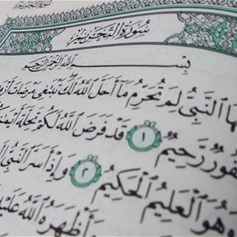 سُورَةُ التَّحْرِيمِ
بِسْمِ اللَّهِ الرَّحْمَٰنِ الرَّحِيمِ
النَّبِيُّ لِمَ تُحَرِّمُ مَا أَحَلَّ اللَّهُ لَكَ تَبْتَغِي مَرْضَاتَ
رَّحِيمٌ ١ قَدْ فَرَضَ اللَّهُ لَكُمْ تَحِلَّةَ
وَهُوَ الْعَلِيمُ الْحَكِيمُ ٢ وَإِذْ أَسَرَّ النَّبِيُّ
وَأَظْهَرَهُ اللَّهُ عَلَيْهِ